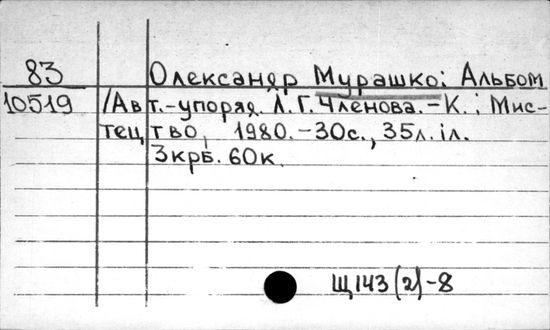 83 Олександр Мурашко: Альбом
10519 /Авт.-упоряд. Л.Г.Членова.-К.: Мис-
тецтво, 1980.-30с., 35л.іл.
3крб. 60к.
Щ143(2)-8